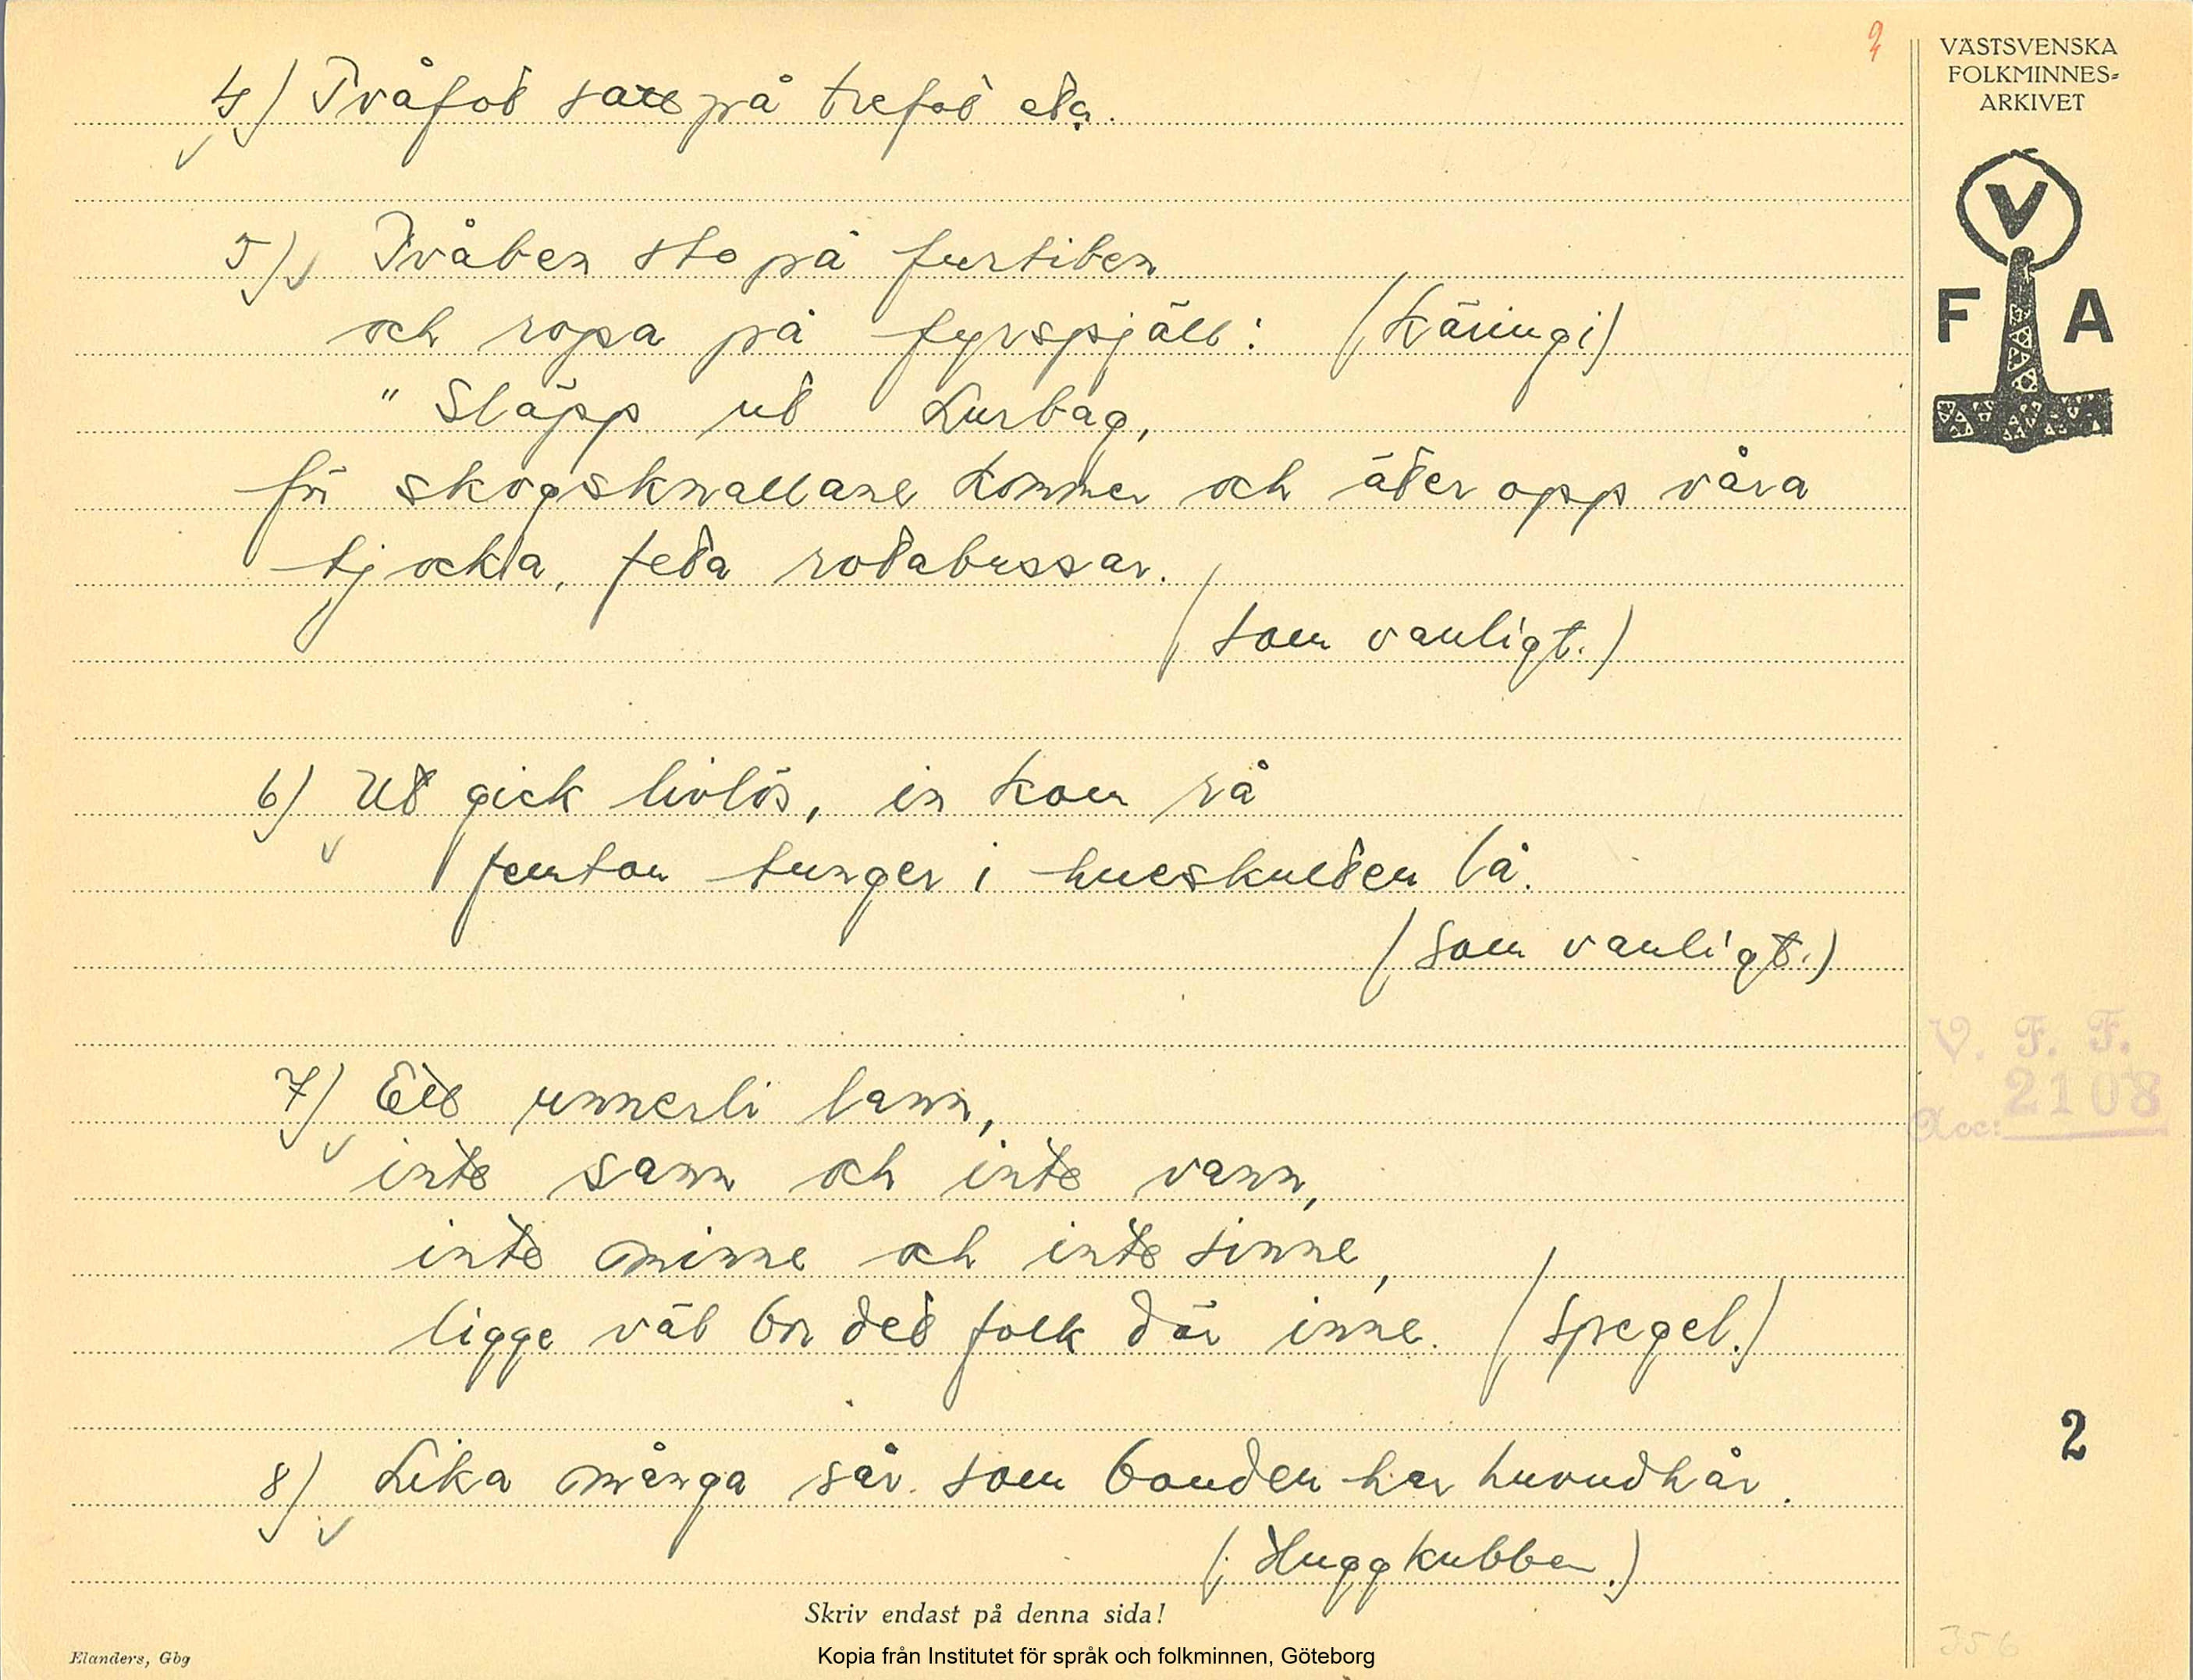 2
VÄSTSVENSKA
FOLKMINNES-
ARKIVET
V
F A
4) Tvåfot satt på trefot etc.
5) Tvåben sto på furtiben
och ropa på fyrspjäll: (Käringi)
" Släpp ut Lurbag,
för skogsknallane kommer och äter opp våra
tjocka, feta rotabussar.
(som vanligt.)
6) Ut gick livlös, in kom rå
femton tunger i hueskulten lå.
(som vanligt.)
7) Ett unnerli lann,
inte sann och inte vann,
inte minne och inte sinne,
ligge väl bor det folk där inne. (spegel.)
8) Lika många sår som bonden har huvudhår.
(Huggkubben.)
V. F. F.
Acc: 2108
2
Skriv endast på denna sida!
Elanders, Gbg
Kopia från Institutet för språk och folkminnen, Göteborg
356